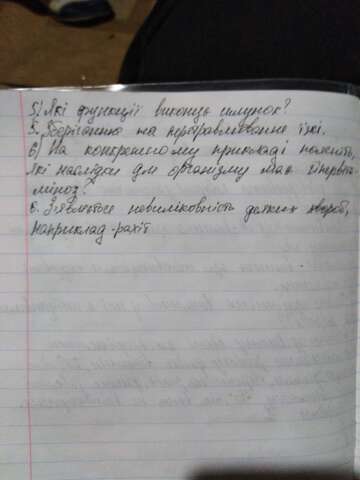 5) Які функції виконує шлунок?
5. Зберігання та перетравлювання їжі.
6) На конкретному прикладі поясніть,
які наслідки для організму має гіпервіта
міноз?
6. З'являється невиліковність деяких хвороб,
наприклад-рахіт